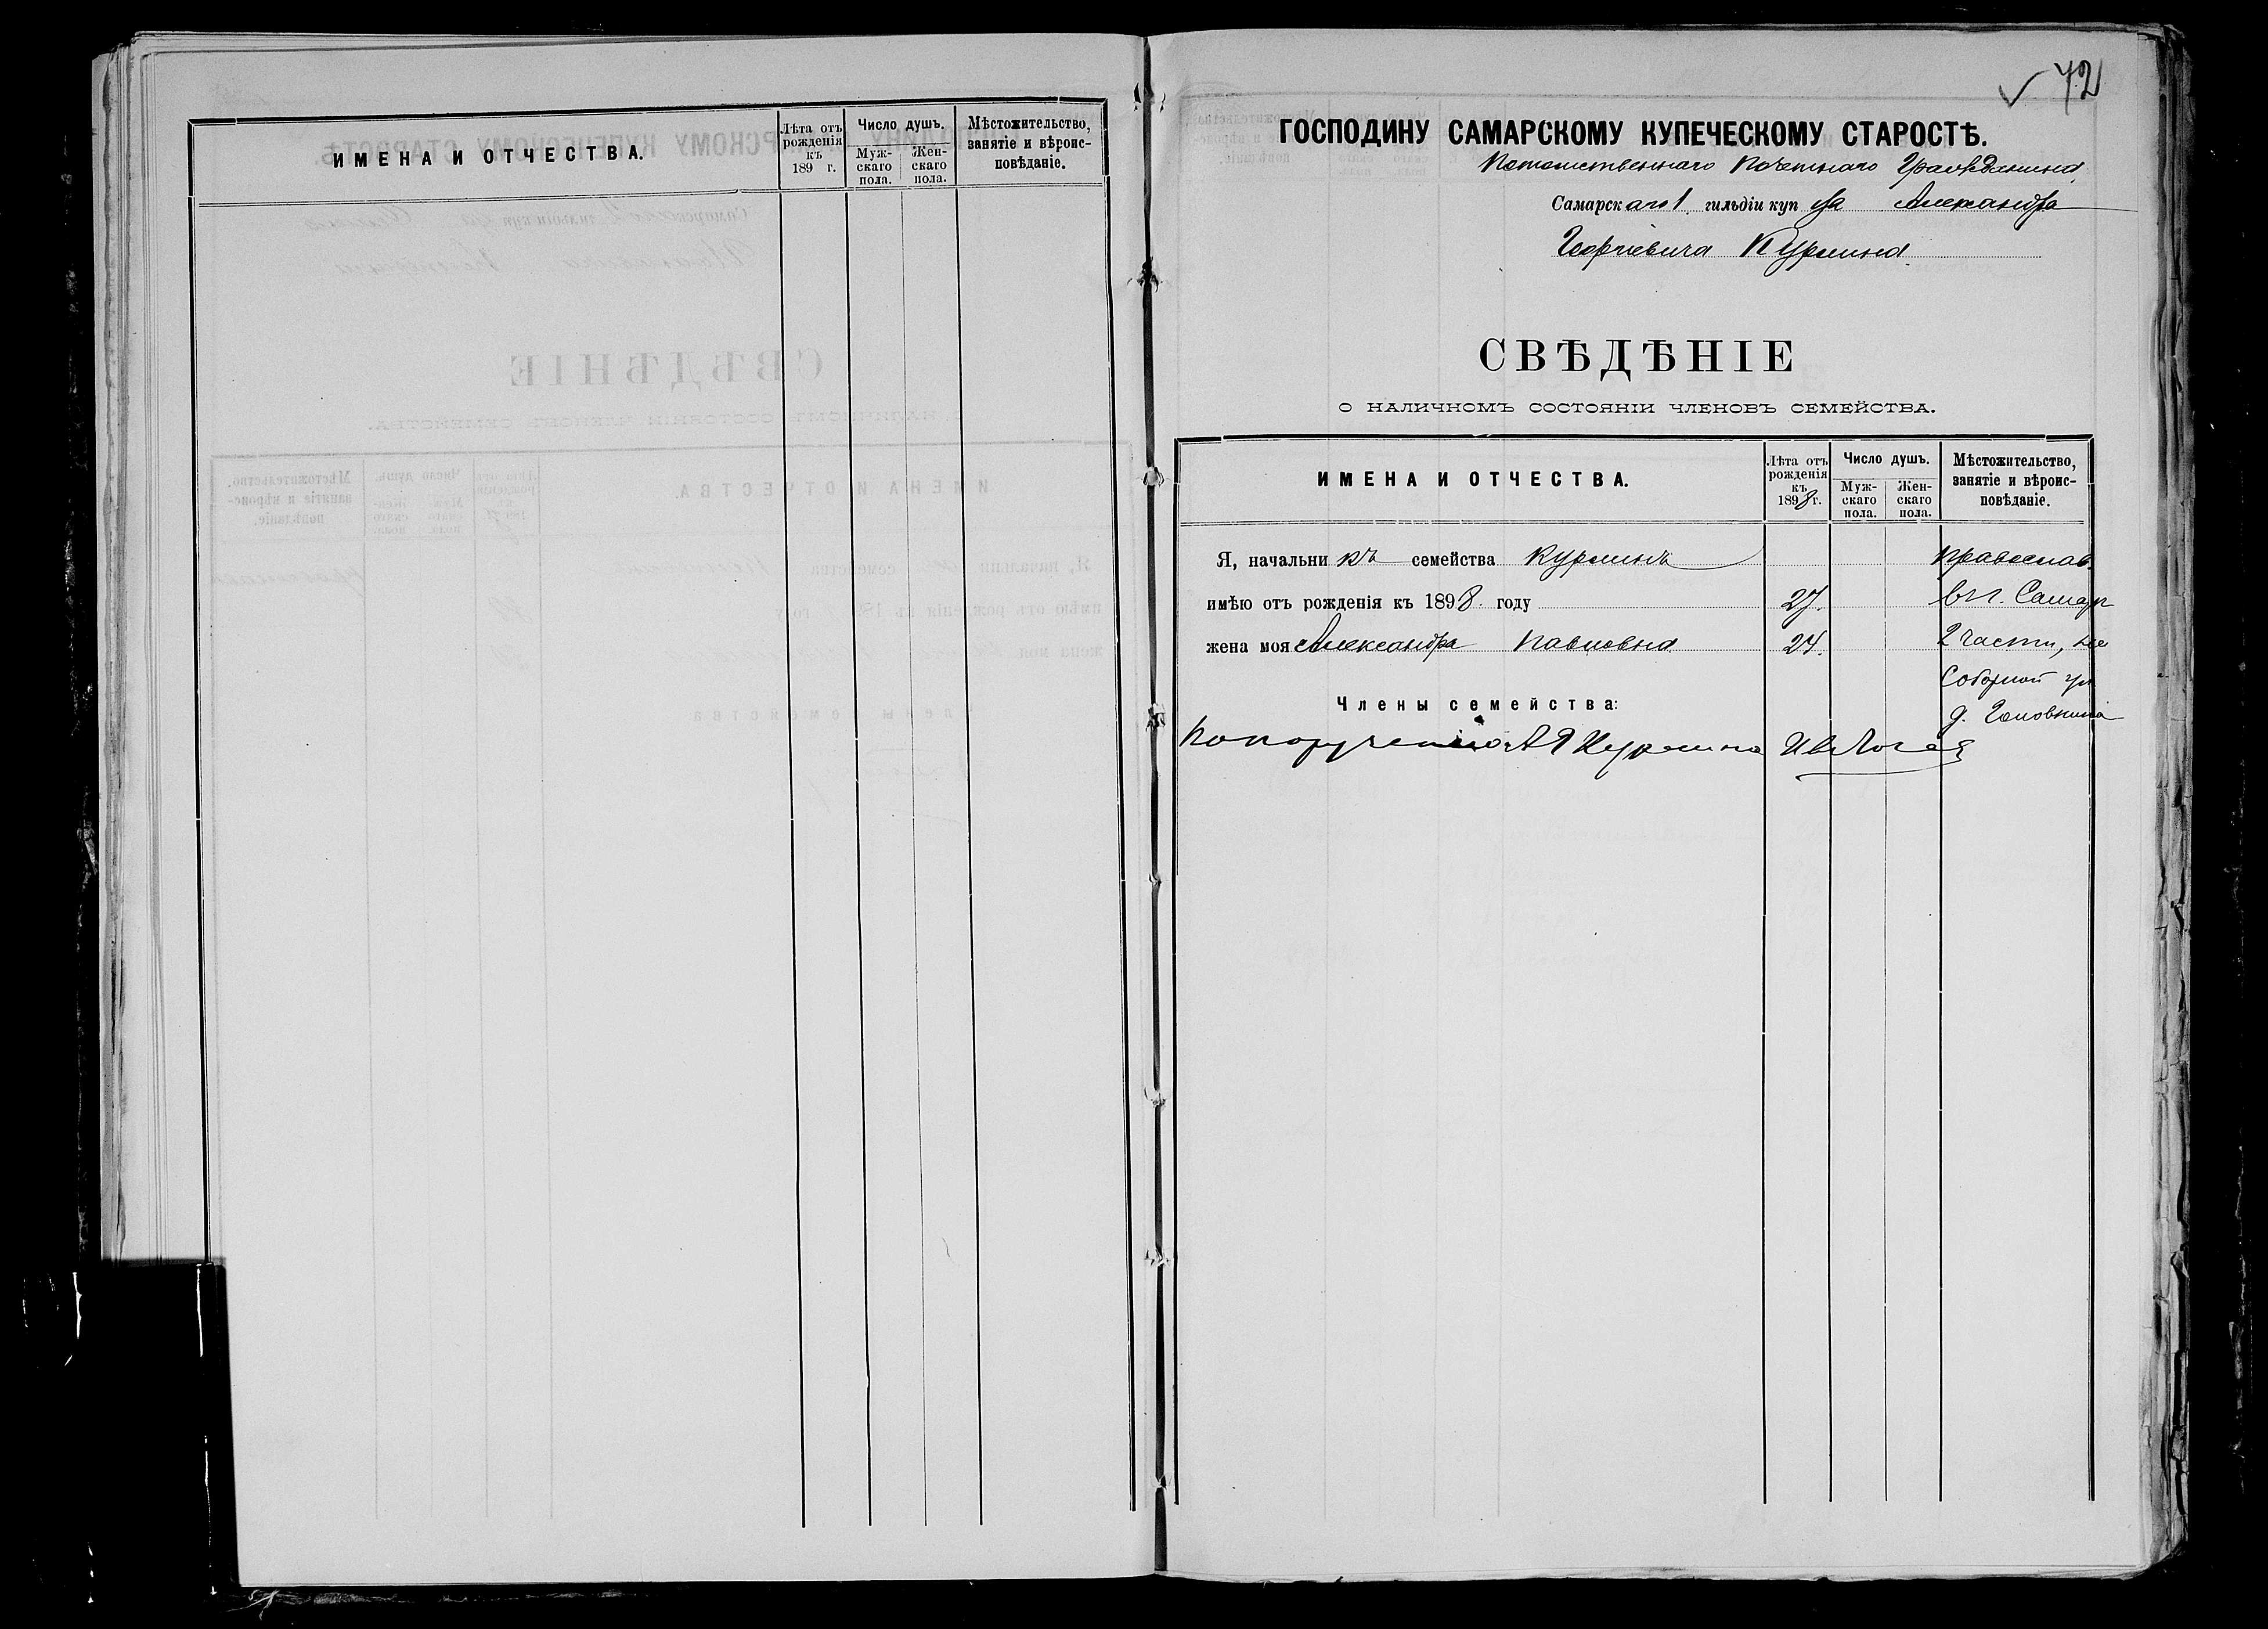 ИМЕНА И ОТЧЕСТВА.
Лѣта отъ рожденія къ 189 г.
Число душъ.
Муж-скаго пола.
Жен-скаго пола.
Мѣстожительство, занятіе и вѣроис-повѣданіе.
72
ГОСПОДИНУ САМАРСКОМУ КУПЕЧЕСКОМУ СТАРОСТѢ.
Потомственнаго Почетнаго Гражданина
Самарскаго 1 гильдіи купца Александра
Георгіевича Курлина
СВѢДѢНІЕ
О НАЛИЧНОМЪ СОСТОЯНІИ ЧЛЕНОВЪ СЕМЕЙСТВА.
ИМЕНА И ОТЧЕСТВА.
Лѣта отъ рожденія къ 1898 г.
Число душъ.
Муж-скаго пола.
Жен-скаго пола.
Мѣстожительство, занятіе и вѣроис-повѣданіе.
Я, начальникъ семейства Курлинъ православ.
имѣю отъ рожденія къ 1898 году 27. въ г. Самар
жена моя Александра Павловна 24. 2 части, на
Соборной ул
Члены семейства:
д. Головкина
По порученію А Г Курлина